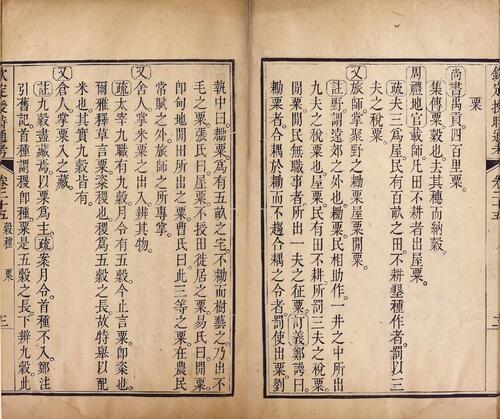 欽定授時通考
粟
尚書禹貢。四百里粟。
集傳粟穀也。去其穗而納穀。
周禮地官載師。凡田不耕者出屋粟。
疏夫三爲屋。民有百畝之田。不耕墾種作者。罰以三
夫之稅粟。
又旅師掌聚野之耡粟屋粟閒粟。
註野。謂遠郊之外也。耡粟。民相助作。一井之中所出
九夫之稅粟也。屋粟。民有田不耕。所罰三夫之稅粟。
閒粟。閒民無職事者。所出一夫之征粟。訂義鄭諤曰。
耡粟者。合耦於耡。而不趨合耦之令者。罰使出粟。劉
執中曰。耡粟。爲有五畝之宅。不耡而樹藝之。乃出不
毛之粟。張氏曰。屋粟。不授田徙居之粟。易氏曰。閒粟。
卽甸地閒田所出之粟。曹氏曰。此三等之粟。在農民
常賦之外。旅師之所專掌。
又舍人。掌米粟之出入。辨其物。
疏太宰九職有九穀。月令有五穀。今止言粟。卽粢也。
爾雅釋草言粟粢稷也。稷爲五穀之長。故特舉以配
米也。其實九穀皆有。
又倉人。掌粟入之藏。
註九穀盡藏焉。以粟爲主。疏案月令。首種不入。鄭注
引舊記。首種謂稷。卽種粟。是五穀之長。下辨九穀。此
欽定授時通考 卷二十五 穀種 粟 三